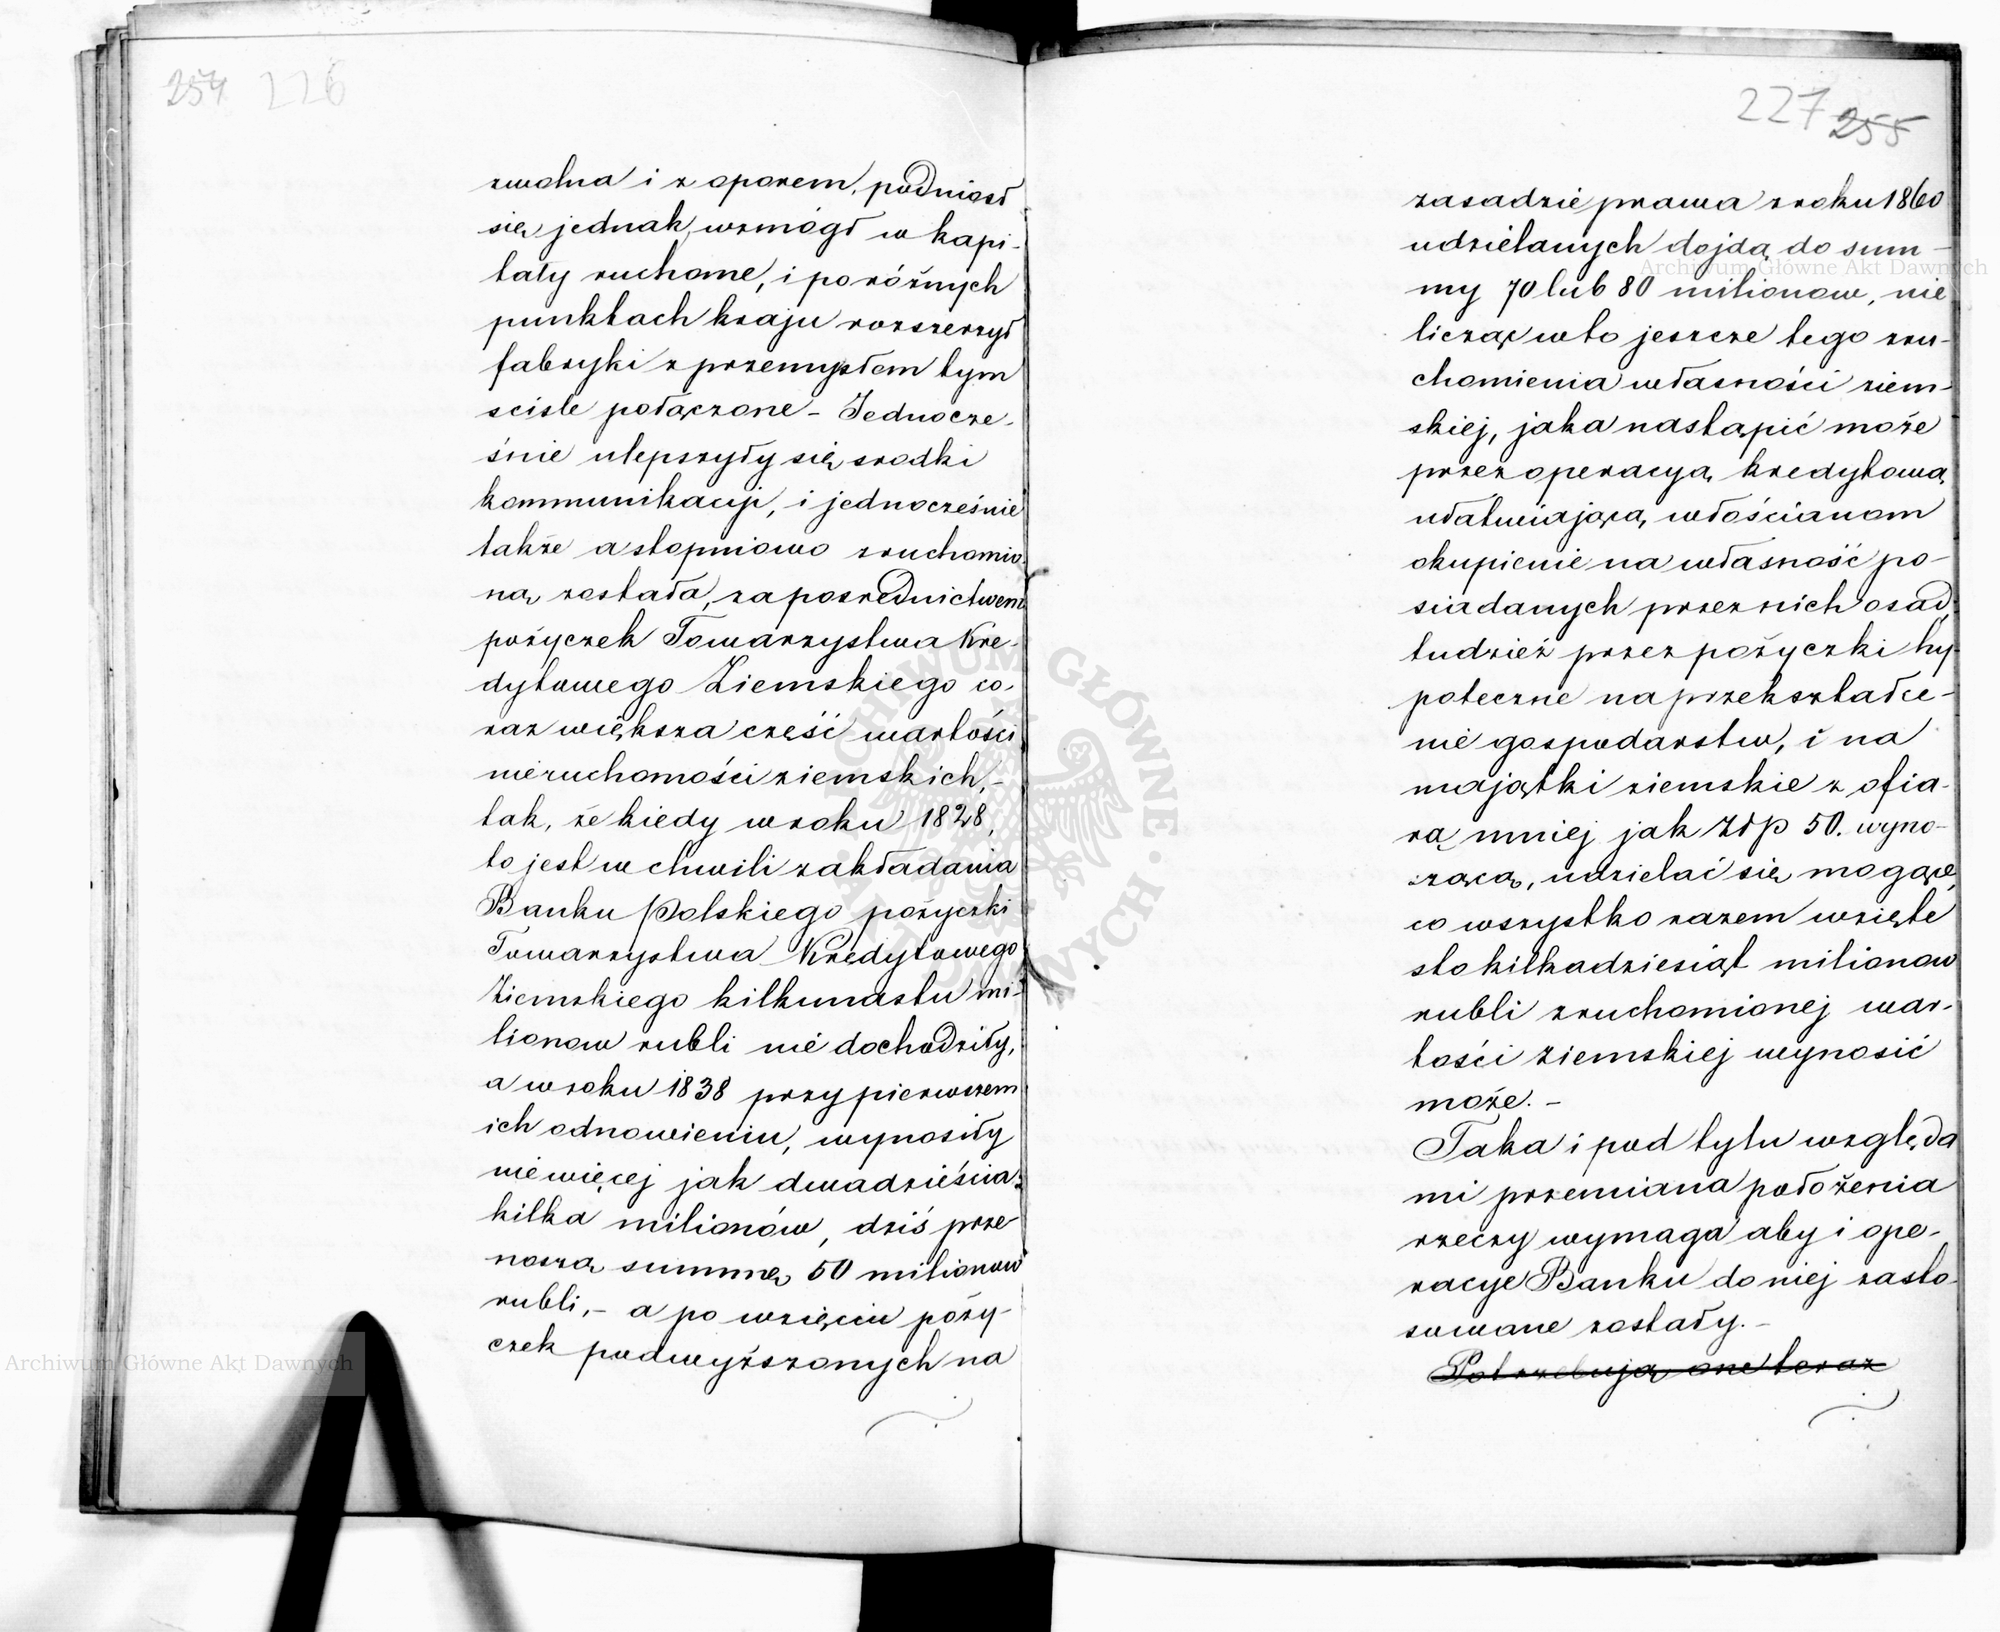 254 226
zwolna i z oporem, podniosł
się jednak, wzmógł w kapi-
tały ruchome, i po różnych
punktach kraju rozszerzył
fabryki z przemysłem tym
sciśle połączone - Jednocze-
śnie ulepszyły się srodki
kommunikacyi, i jednocześnie
także a stopniowo zruchomio-
ną została, za posrednictwem
pożyczek Towarzystwa Kre-
dytowego Ziemskiego co-
raz większa część wartości
nieruchomości ziemskich, -
tak, że kiedy w roku 1828,
to jest w chwili zakładania
Banku Polskiego pożyczki
Towarzystwa Kredytowego
Ziemskiego kilkunastu mi-
lionow rubli nie dochodziły,
a w roku 1838 przy pierwszem
ich odnowieniu, wynosiły
nie więcej jak dwadzieścia
kilka milionów, dziś prze-
noszą summę 50 milionow
rubli, - a po wzięciu poży-
czek podwyższonych na
227 255
zasadzie prawa z roku 1860
udzielanych dojdą do sum-
my 70 lub 80 milionow, nie
licząc w to jeszcze tego zru-
chomienia własności ziem-
skiej, jaka nastąpić może
przez operacyą kredytową
ułatwiającą włościanom
okupienie na własność po-
siadanych przez nich osad,
tudzież przez pożyczki hy-
poteczne na przekształce-
nie gospodarstw, i na
majątki ziemskie z ofia-
rą mniej jak Złp 50. wyno-
szącą, udzielać się mogące,
co wszystko razem wzięte
sto kilkadziesiąt milionow
rubli zruchomionej war-
tości ziemskiej wynosić
może. -
Taka i pod tylu względa
mi przemiana położenia
rzeczy wymaga aby i ope-
racye Banku do niej zasto-
sowane zostały. -
Potrzebują one teraz
Archiwum Główne Akt Dawnych
Archiwum Główne Akt Dawnych
ARCHIWUM GŁÓWNE AKT DAWNYCH